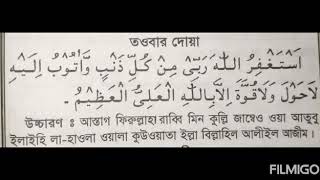 তওবার দোয়া
اَسْتَغْفِرُ اللّٰهَ رَبِّىْ مِنْ كُلِّ ذَنْبٍ وَّاَتُوْبُ اِلَيْهِ
لَاحَوْلَ وَلَاقُوَّةَ اِلَّابِاللّٰهِ الْعَلِىِّ الْعَظِيْمِ ـ
উচ্চারণ ঃ আস্তাগ ফিরুল্লাহা রাব্বি মিন কুল্লি জাম্বেও ওয়া আতুবু
ইলাইহি লা-হাওলা ওয়ালা কুওয়াতা ইল্লা বিল্লাহিল আলীইল আজীম।
FILMIGO